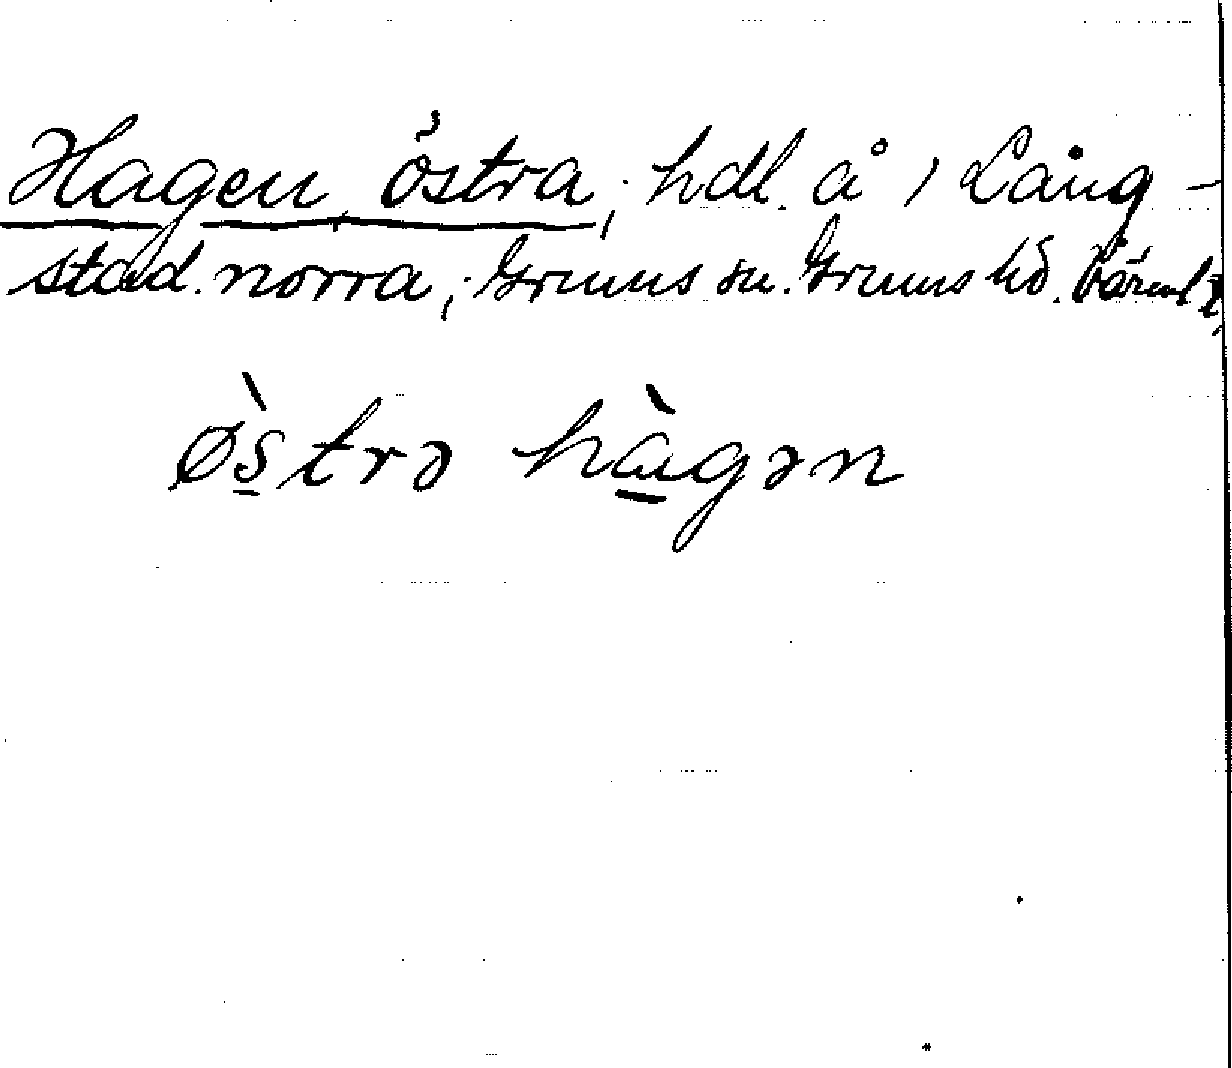 Hagen, östra, hdl. å 1 Lång-
stad norra, Grums sn. Grums hd. Värml.
øs̀trə hàgən